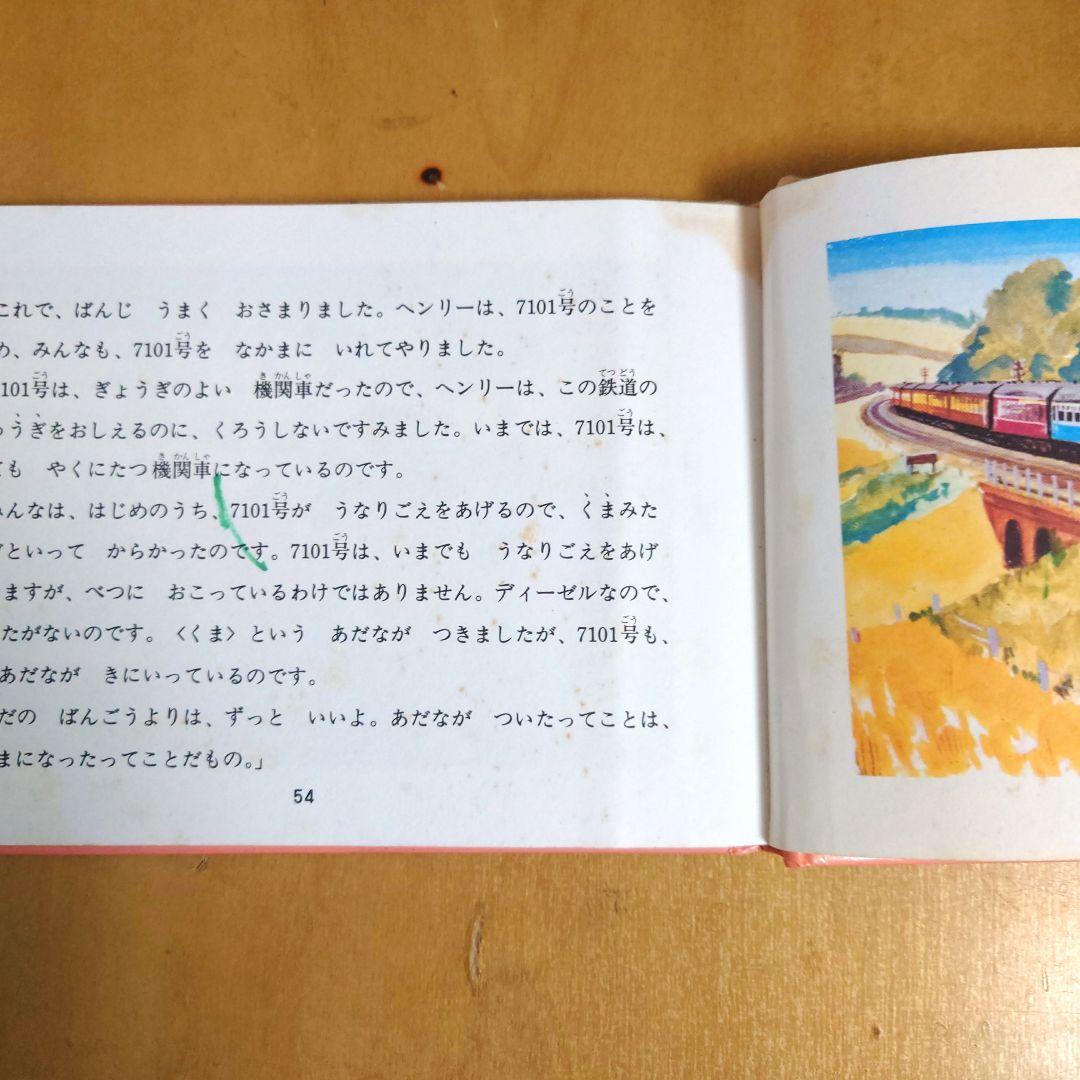 これで、ばんじ　うまく　おさまりました。ヘンリーは、7101号のことを
め、みんなも、7101号を　なかまに　いれてやりました。
101号は、ぎょうぎのよい　機関車だったので、ヘンリーは、この鉄道の
ゅうぎをおしえるのに、くろうしないですみました。いまでは、7101号は、
ても　やくにたつ機関車になっているのです。
みんなは、はじめのうち、7101号が　うなりごえをあげるので、くまみた
といって　からかったのです。7101号は、いまでも　うなりごえをあげ
ますが、べつに　おこっているわけではありません。ディーゼルなので、
たがないのです。〈くま〉という　あだなが　つきましたが、7101号も、
あだなが　きにいっているのです。
だの　ばんごうよりは、ずっと　いいよ。あだなが　ついたってことは、
まになったってことだもの。」
54